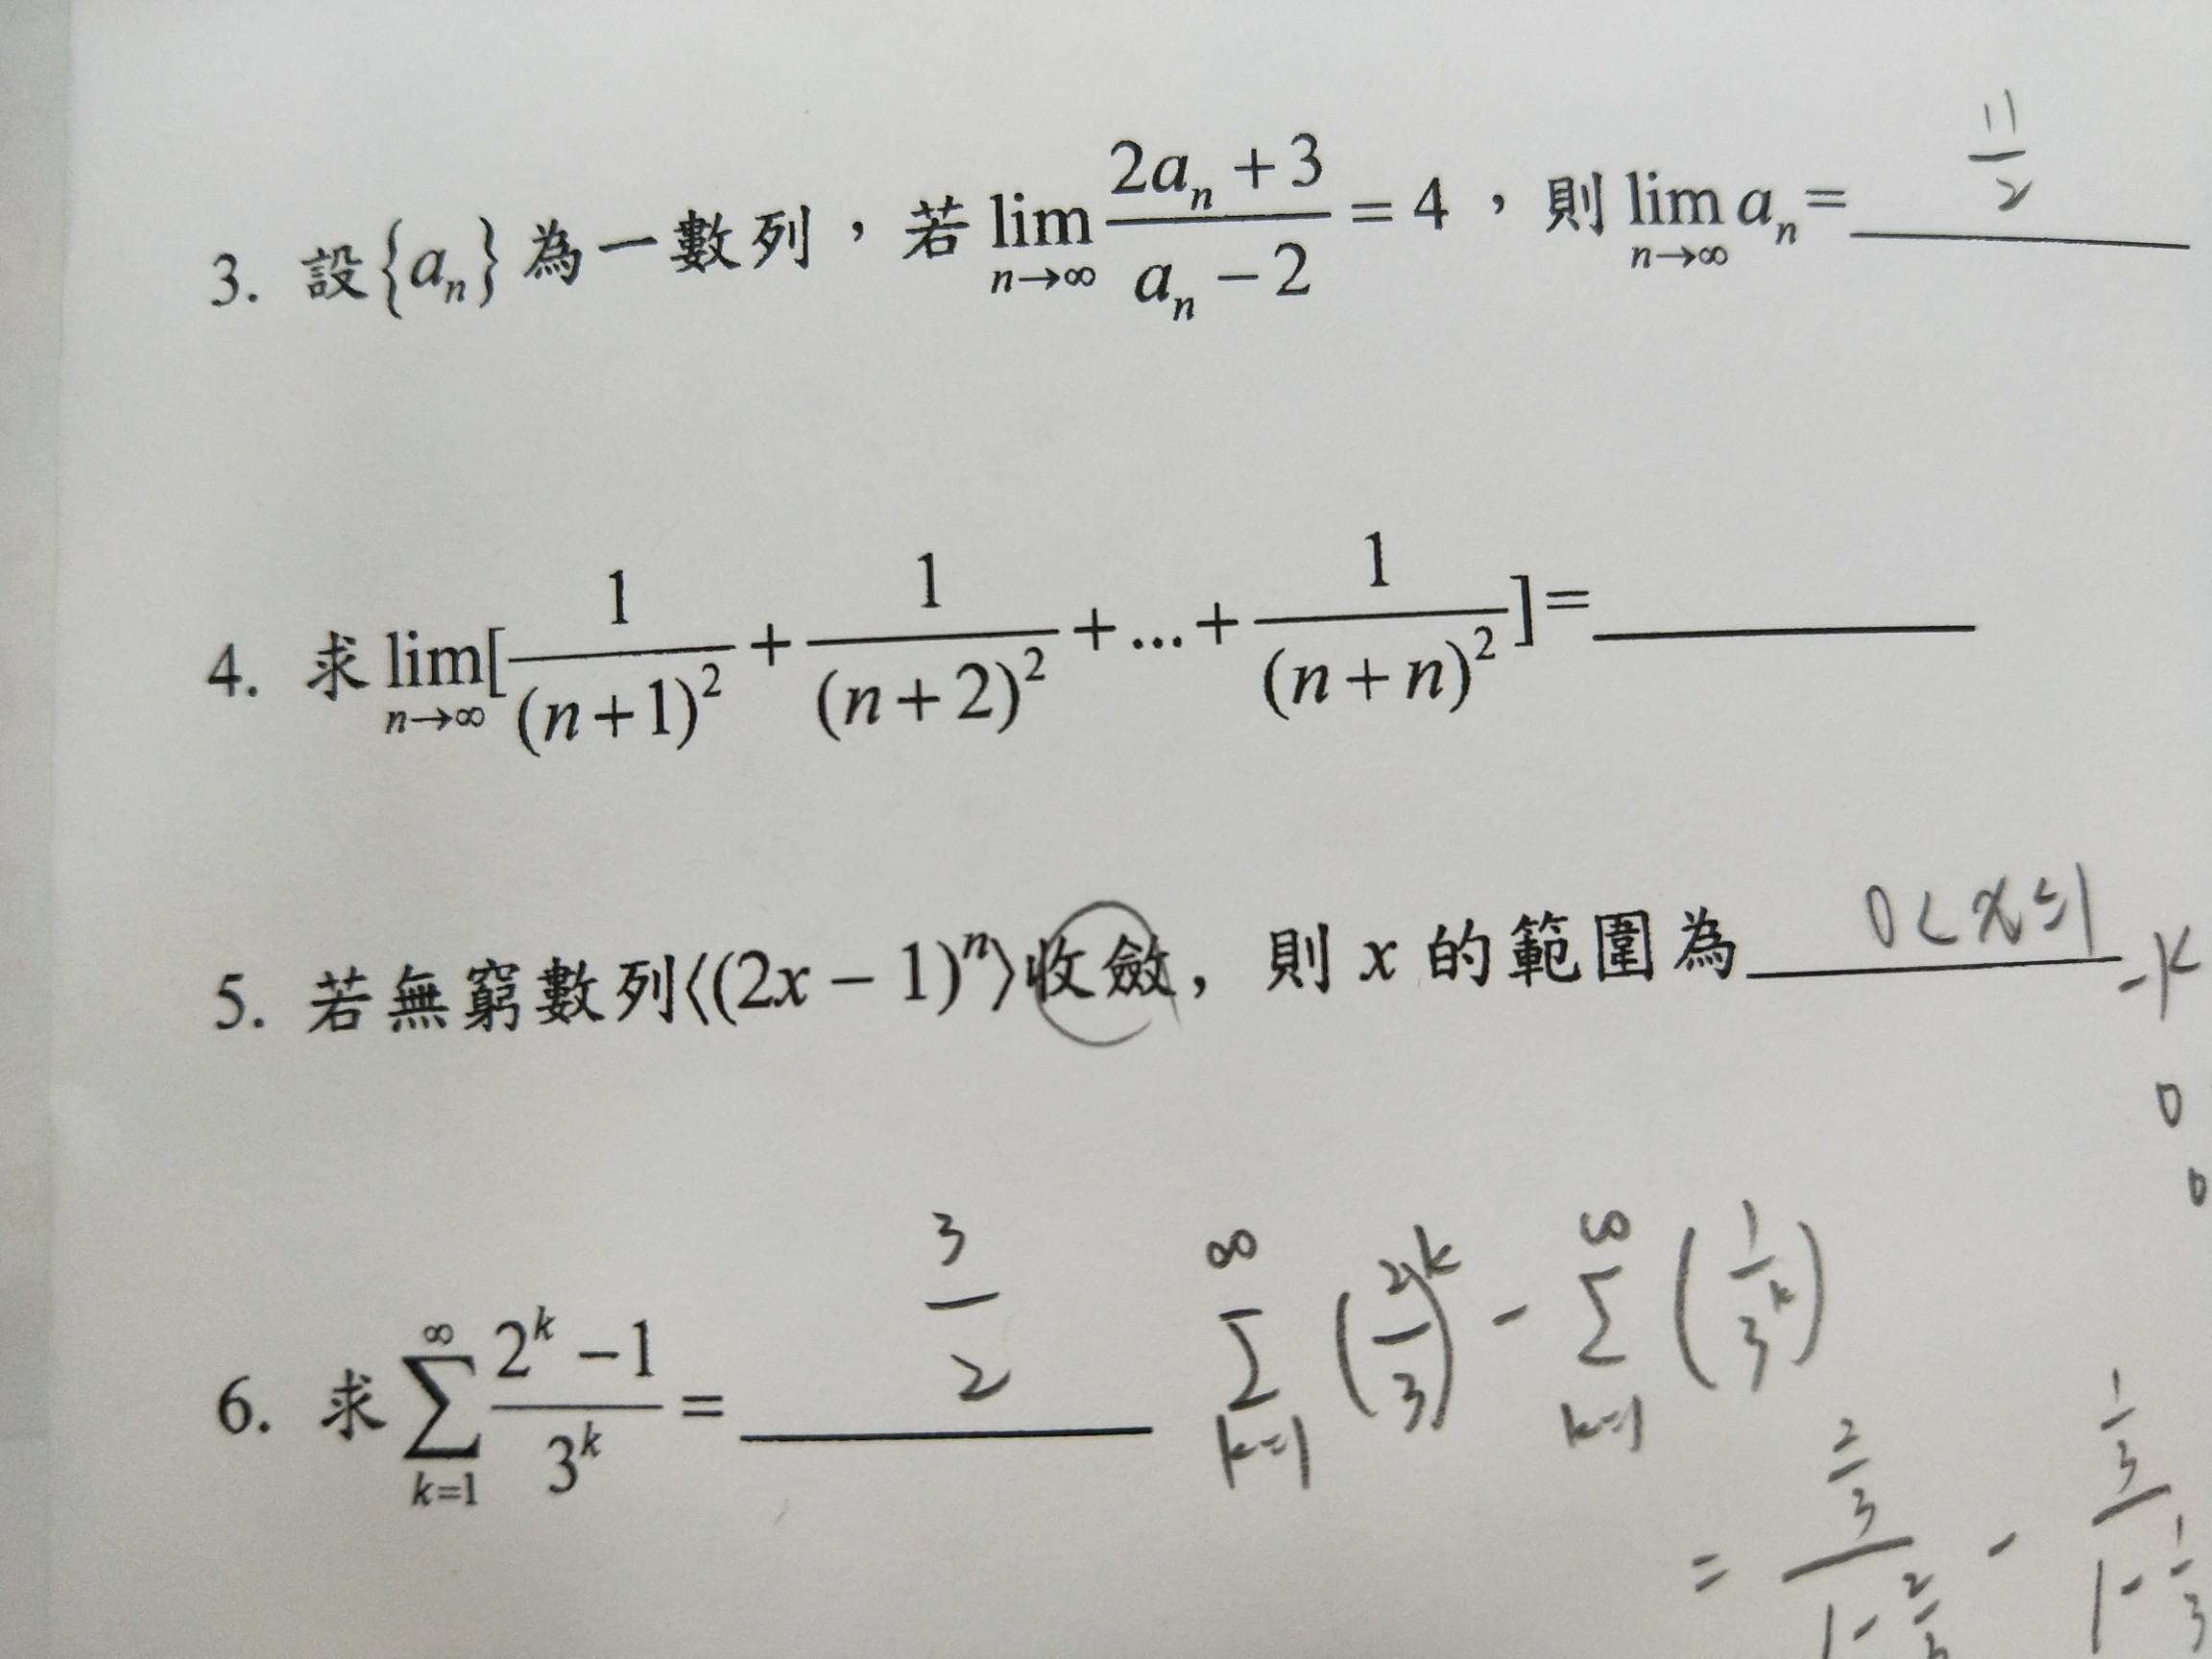 3. 設{aₙ}為一數列，若 lim_{n→∞} (2aₙ+3)/(aₙ−2) = 4，則 lim_{n→∞} aₙ = 11/2
4. 求 lim_{n→∞} [1/(n+1)² + 1/(n+2)² + ... + 1/(n+n)²] =
5. 若無窮數列⟨(2x − 1)ⁿ⟩收斂，則 x 的範圍為 0<x≤1
0
0
6. 求 ∑_{k=1}^{∞} (2ᵏ−1)/3ᵏ = 3/2 ∑_{k=1}^{∞} (2/3)ᵏ - ∑_{k=1}^{∞} (1/3ᵏ)
= (2/3)/(1-2/3) - (1/3)/(1-1/3)